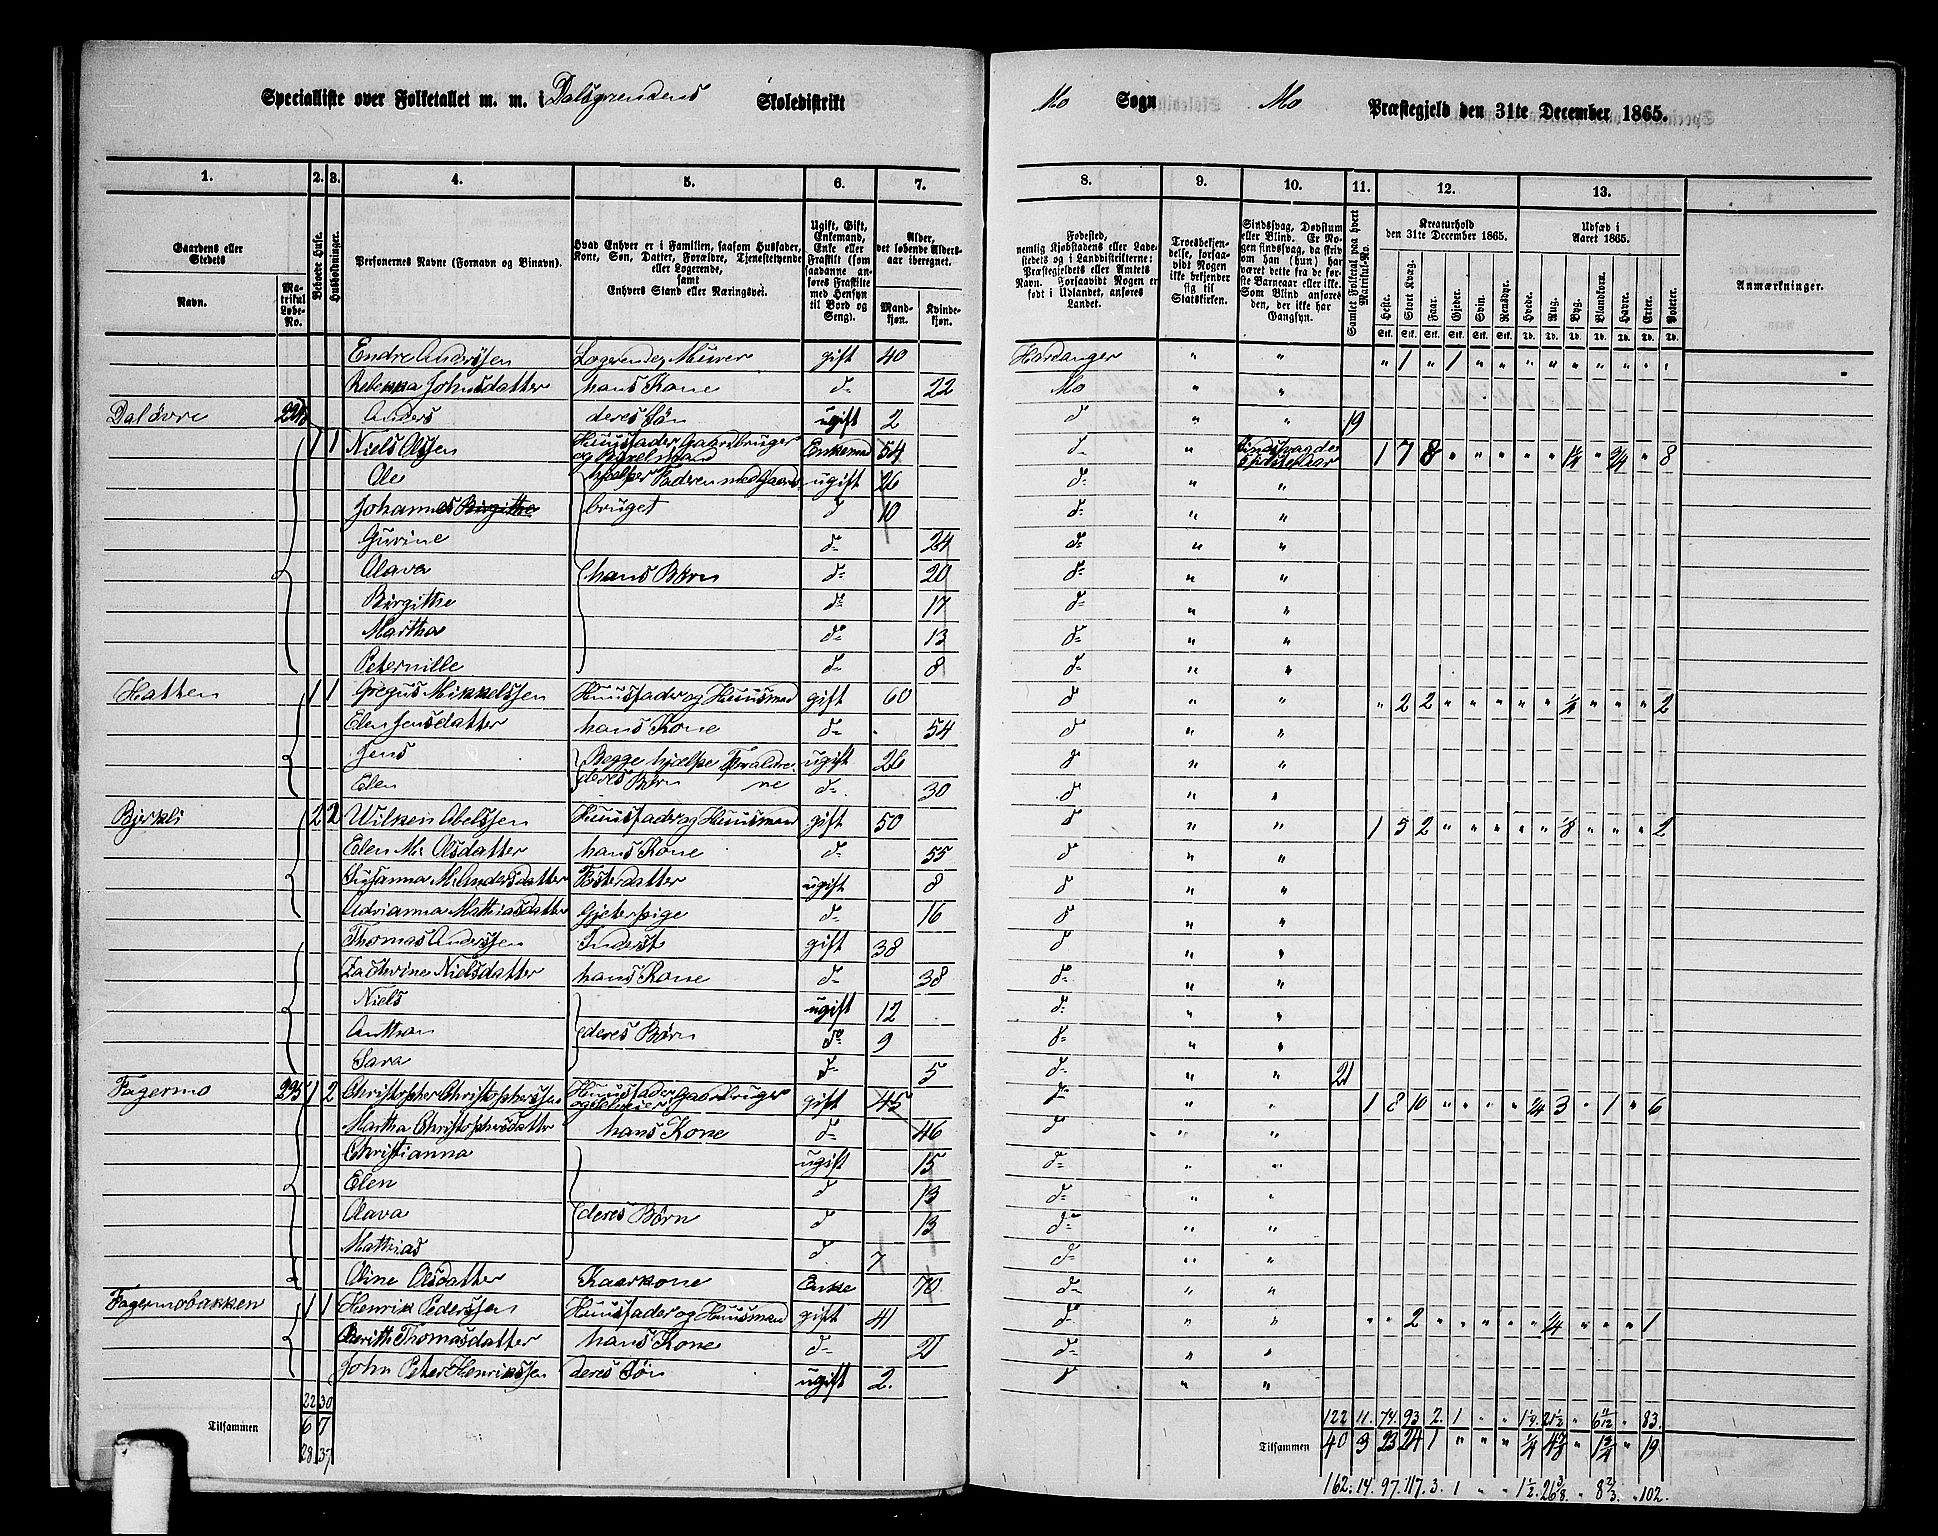 Specialliste over Folketallet m. m. i Dalsgrendens Skoledistrikt
Mo Sogn Mo Præstegjeld den 31te December 1865.
1. 2. 3. 4. 5. 6. 7. 8. 9. 10. 11. 12. 13.
Gaardens eller Stedets
Navn.
Matrikul Løbe-No.
Beboede Huse.
Husholdninger.
Personernes Navne (Fornavn og Binavn).
Hvad Enhver er i Familien, saasom Husfader, Kone, Søn, Datter, Forældre, Tjenestetyende eller Logerende, samt Enhvers Stand eller Næringsvei.
Ugift, Gift, Enkemand, Enke eller Fraskilt (som saadanne anføres Fraskilte med Hensyn til Bord og Seng).
Alder, det løbende Alders-aar iberegnet.
Mandkjøn. Kvindekjøn.
Fødested, nemlig Kjøbstadens eller Ladestedets og i Landdistrikterne: Præstegjeldets eller Amtets Navn. Forsaavidt Nogen er født i Udlandet, anføres Landet.
Troesbekjendelse, forsaavidt Nogen ikke bekjender sig til Statskirken.
Sindssvag, Døvstum eller Blind. Er Nogen sindssvag, da skriv om han (hun) har været dette fra de første Barneaar eller ikke. Som Blind anføres den, der ikke har Gangsyn.
Samlet Folketal paa hvert Matrikul-No.
Kreaturhold den 31te December 1865.
Heste. Stort Kvæg. Faar. Gjeder. Svin. Rensdyr.
Udsæd i Aaret 1865.
Hvede. Rug. Byg. Blandkorn. Havre. Erter. Poteter.
Anmærkninger.
Endre Andersen Logerende, Murer gift 40 Hardanger " " " 1 " 1 " " " " " " " " "
Rebekka Johnsdatter hans Kone d- 22 Mo " "
Daløvre 224 Anders deres Søn ugift 2 d " " 19
1 1 Niels Olssen Huusfader Gaardbruger Enkemd 54 d- " 1 7 8 " " " " " 1¼ " ¾ " 8
Ole hjælper Faderen med Gaards- ugift 26 d- " "
Johannes bruget d 10 d- " "
Gurine d- 24 d- " "
Olava hans Børn d- 20 d- " "
Birgithe d- 17 d- " "
Martha d- 13 d- " "
Peternille d- 8 d- " "
Hatten 1 1 Gregus Mikkelssen Huusfader og Huusmand gift 60 d " " " 2 2 " " " " " " " " 2
Elen Jensdatter hans Kone d- 54 d " "
Jens Begge hjælpe Forældre- ugift 26 d " "
Elen deres Børn ne d- 30 d " "
Bjerkli 2 2 Wilken Abelssen Huusfader og Huusmand gift 50 d " " 1 5 2 " " " " " ⅛ " " " 2
Elen M. Olsdatter hans Kone d- 55 d " "
Susanna M. Andersdatter Fosterdatter ugift 8 d " "
Adrianna Mathiasdatter Gjeterpige d- 16 d " "
Thomas Anderssen Inderst gift 38 d " "
Zacherine Nielsdatter hans Kone d- 38 d- " "
Niels ugift 12 d- " "
Anthon deres Børn do 9 d- " "
Sara d- 5 d- " " 21
Fagermo 225 1 2 Christopher Christopherssen Huusfader Gaardbruger gift 45 d- " " 1 8 10 " " " " ¾ 3 " 1 " 6
Martha Christophersdatter hans Kone d- 46 d " "
Christianna ugift 15 d- " "
Elen d 13 d- " "
Olava deres Børn d 13 d- " "
Mathias d 7 d- " "
Oline Olsdatter Kaarkone Enke 70 d- " "
Fagermobakken 1 1 Henrik Pederssen Huusfader og Huusmand gift 41 d- " " " " 2 " " " " " ¾ " " " 1
Berith Thomasdatter hans Kone d- 21 d- " "
John Peter Henrikssen deres Søn ugift 2. d " "
22 30
Tilsammen 6 7
28 37
122 11. 74. 93 2. 1 " " 1¼ 21½ " 6 11/12 " 83.
Tilsammen 40 3 23 24 1 " " " ¼ 4⅞ " 1¾ " 19
162. 14. 97. 117. 3. 1 " " 1½ 26⅜ " 8⅔ " 102.